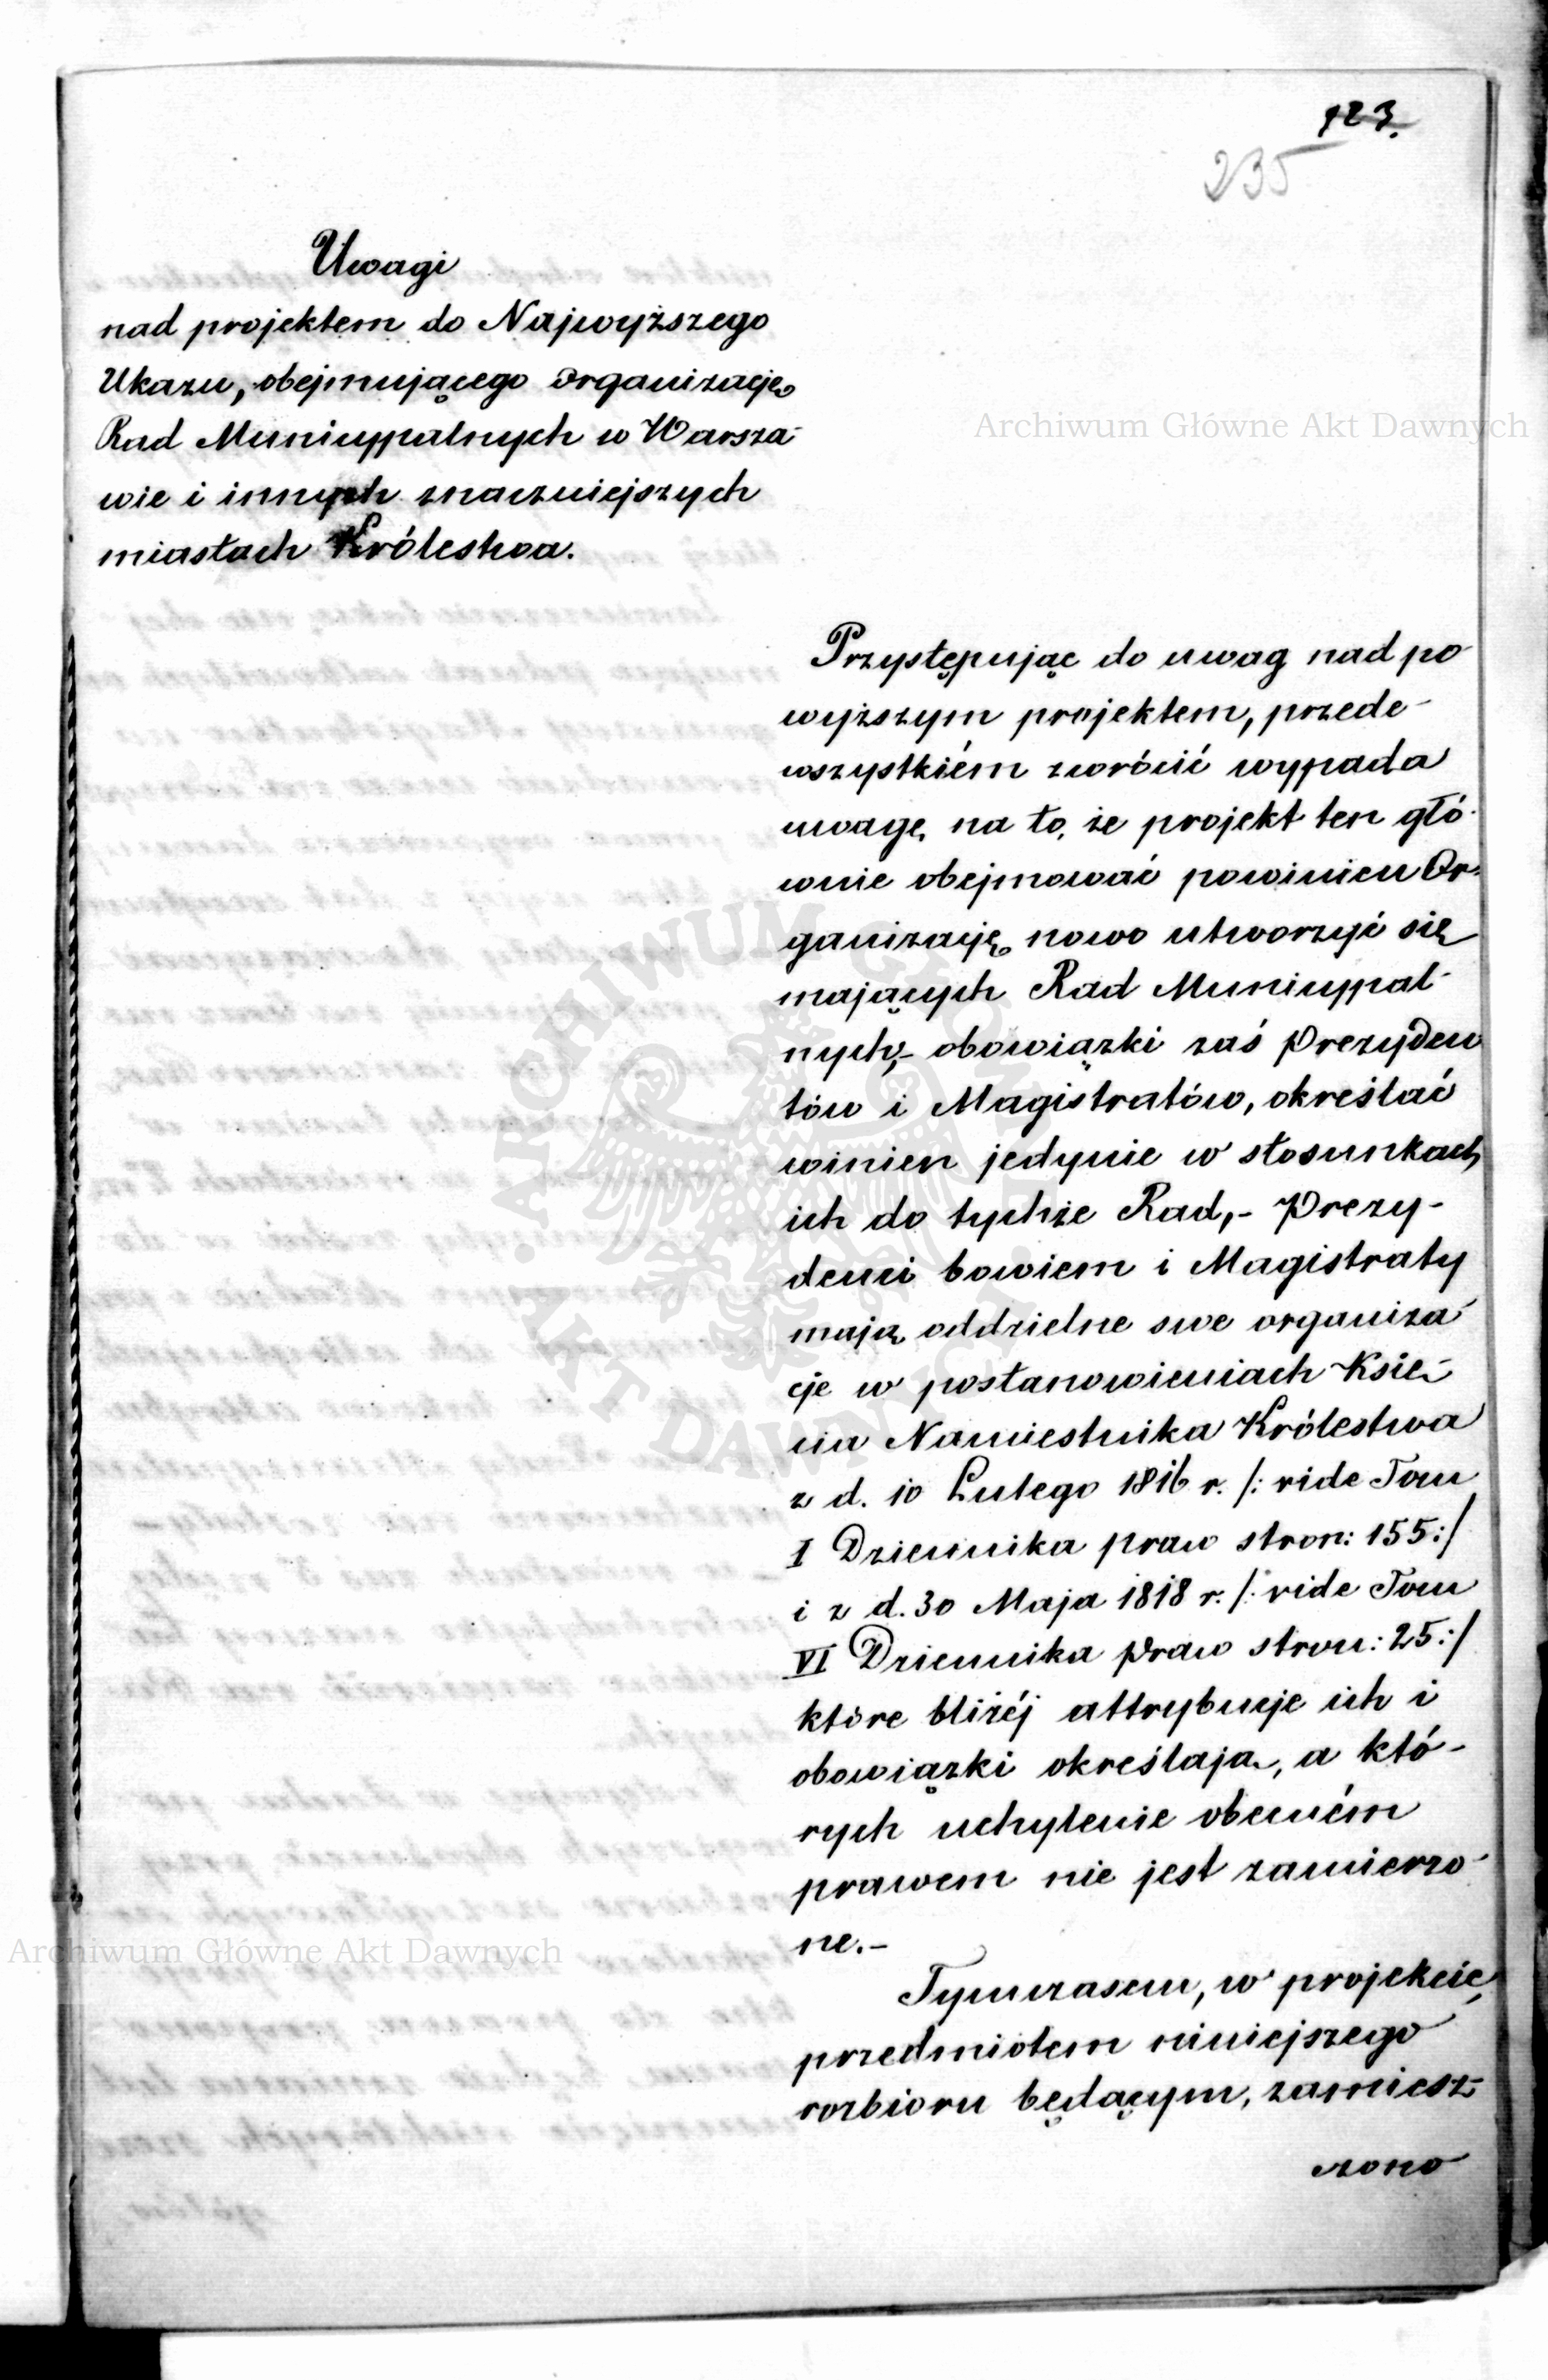 123.
235
Uwagi
nad projektem do Najwyższego
Ukazu, obejmującego Organizacje
Rad Municypalnych w Warsza-
wie i innych znaczniejszych
miastach Królestwa.
Archiwum Główne Akt Dawnych
Przystępując do uwag nad po-
wyższym projektem, przede-
wszystkiém zwrócić wypada
uwagę na to, że projekt ten głó-
wnie obejmować powinien Or-
ganizację nowo utworzyć się
mających Rad Municypal-
nych,- obowiązki zaś Prezyden
tów i Magistratów, określać
winien jedynie w stosunkach
ich do tychże Rad,- Prezy-
denci bowiem i Magistraty
mają oddzielne swe organiza-
cje w postanowieniach Księ-
cia Namiestnika Królestwa
z d. 10 Lutego 1816 r. /: vide Tom
I Dziennika praw stron: 155:/
i z d. 30 Maja 1818 r. /: vide Tom
VI Dziennika Praw stron: 25:/
które bliżéj attrybucje ich i
obowiązki określają, a któ-
rych uchylenie obecném
prawem nie jest zamierzo-
ne.-
Tymczasem, w projekcie,
przedmiotem niniejszego
rozbioru będącym, zamiesz-
czono
ARCHIWUM GŁÓWNE
AKT DAWNYCH
Archiwum Główne Akt Dawnych